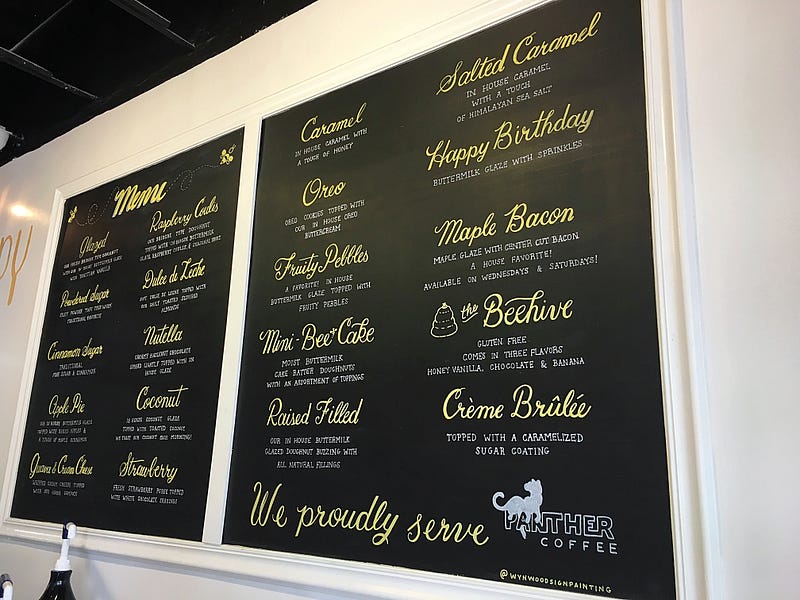 PY
Menu
Glazed
Powdered Sugar
Cinnamon Sugar
TRADITIONAL
Apple Pie
Guava & Cream Cheese
Raspberry Coulis
Dulce de Leche
ALMONDS
Nutella
Coconut
TOPPED WITH TOASTED COCONUT
WE TOAST OUR COCONUT EACH MORNING!
Strawberry
FRESH STRAWBERRY PUREE TOPPED
WITH WHITE CHOCOLATE SHAVINGS
Caramel
IN HOUSE CARAMEL WITH
A TOUCH OF HONEY
Oreo
OREO COOKIES TOPPED WITH
OUR IN HOUSE OREO
BUTTERCREAM
Fruity Pebbles
A FAVORITE! IN HOUSE
BUTTERMILK GLAZE TOPPED WITH
FRUITY PEBBLES
Mini-Bee Cake
MOIST BUTTERMILK
CAKE BATTER DOUGHNUTS
WITH AN ASSORTMENT OF TOPPINGS
Raised Filled
OUR IN HOUSE BUTTERMILK
GLAZED DOUGHNUT BUZZING WITH
ALL NATURAL FILLINGS
Salted Caramel
IN HOUSE CARAMEL
WITH A TOUCH
OF HIMALAYAN SEA SALT
Happy Birthday
BUTTERMILK GLAZE WITH SPRINKLES
Maple Bacon
MAPLE GLAZE WITH CENTER CUT BACON
A HOUSE FAVORITE!
AVAILABLE ON WEDNESDAYS & SATURDAYS!
the Beehive
GLUTEN FREE
COMES IN THREE FLAVORS
HONEY VANILLA, CHOCOLATE & BANANA
Crème Brûlée
TOPPED WITH A CARAMELIZED
SUGAR COATING
We proudly serve
PANTHER
COFFEE
@WYNWOODSIGNPAINTING